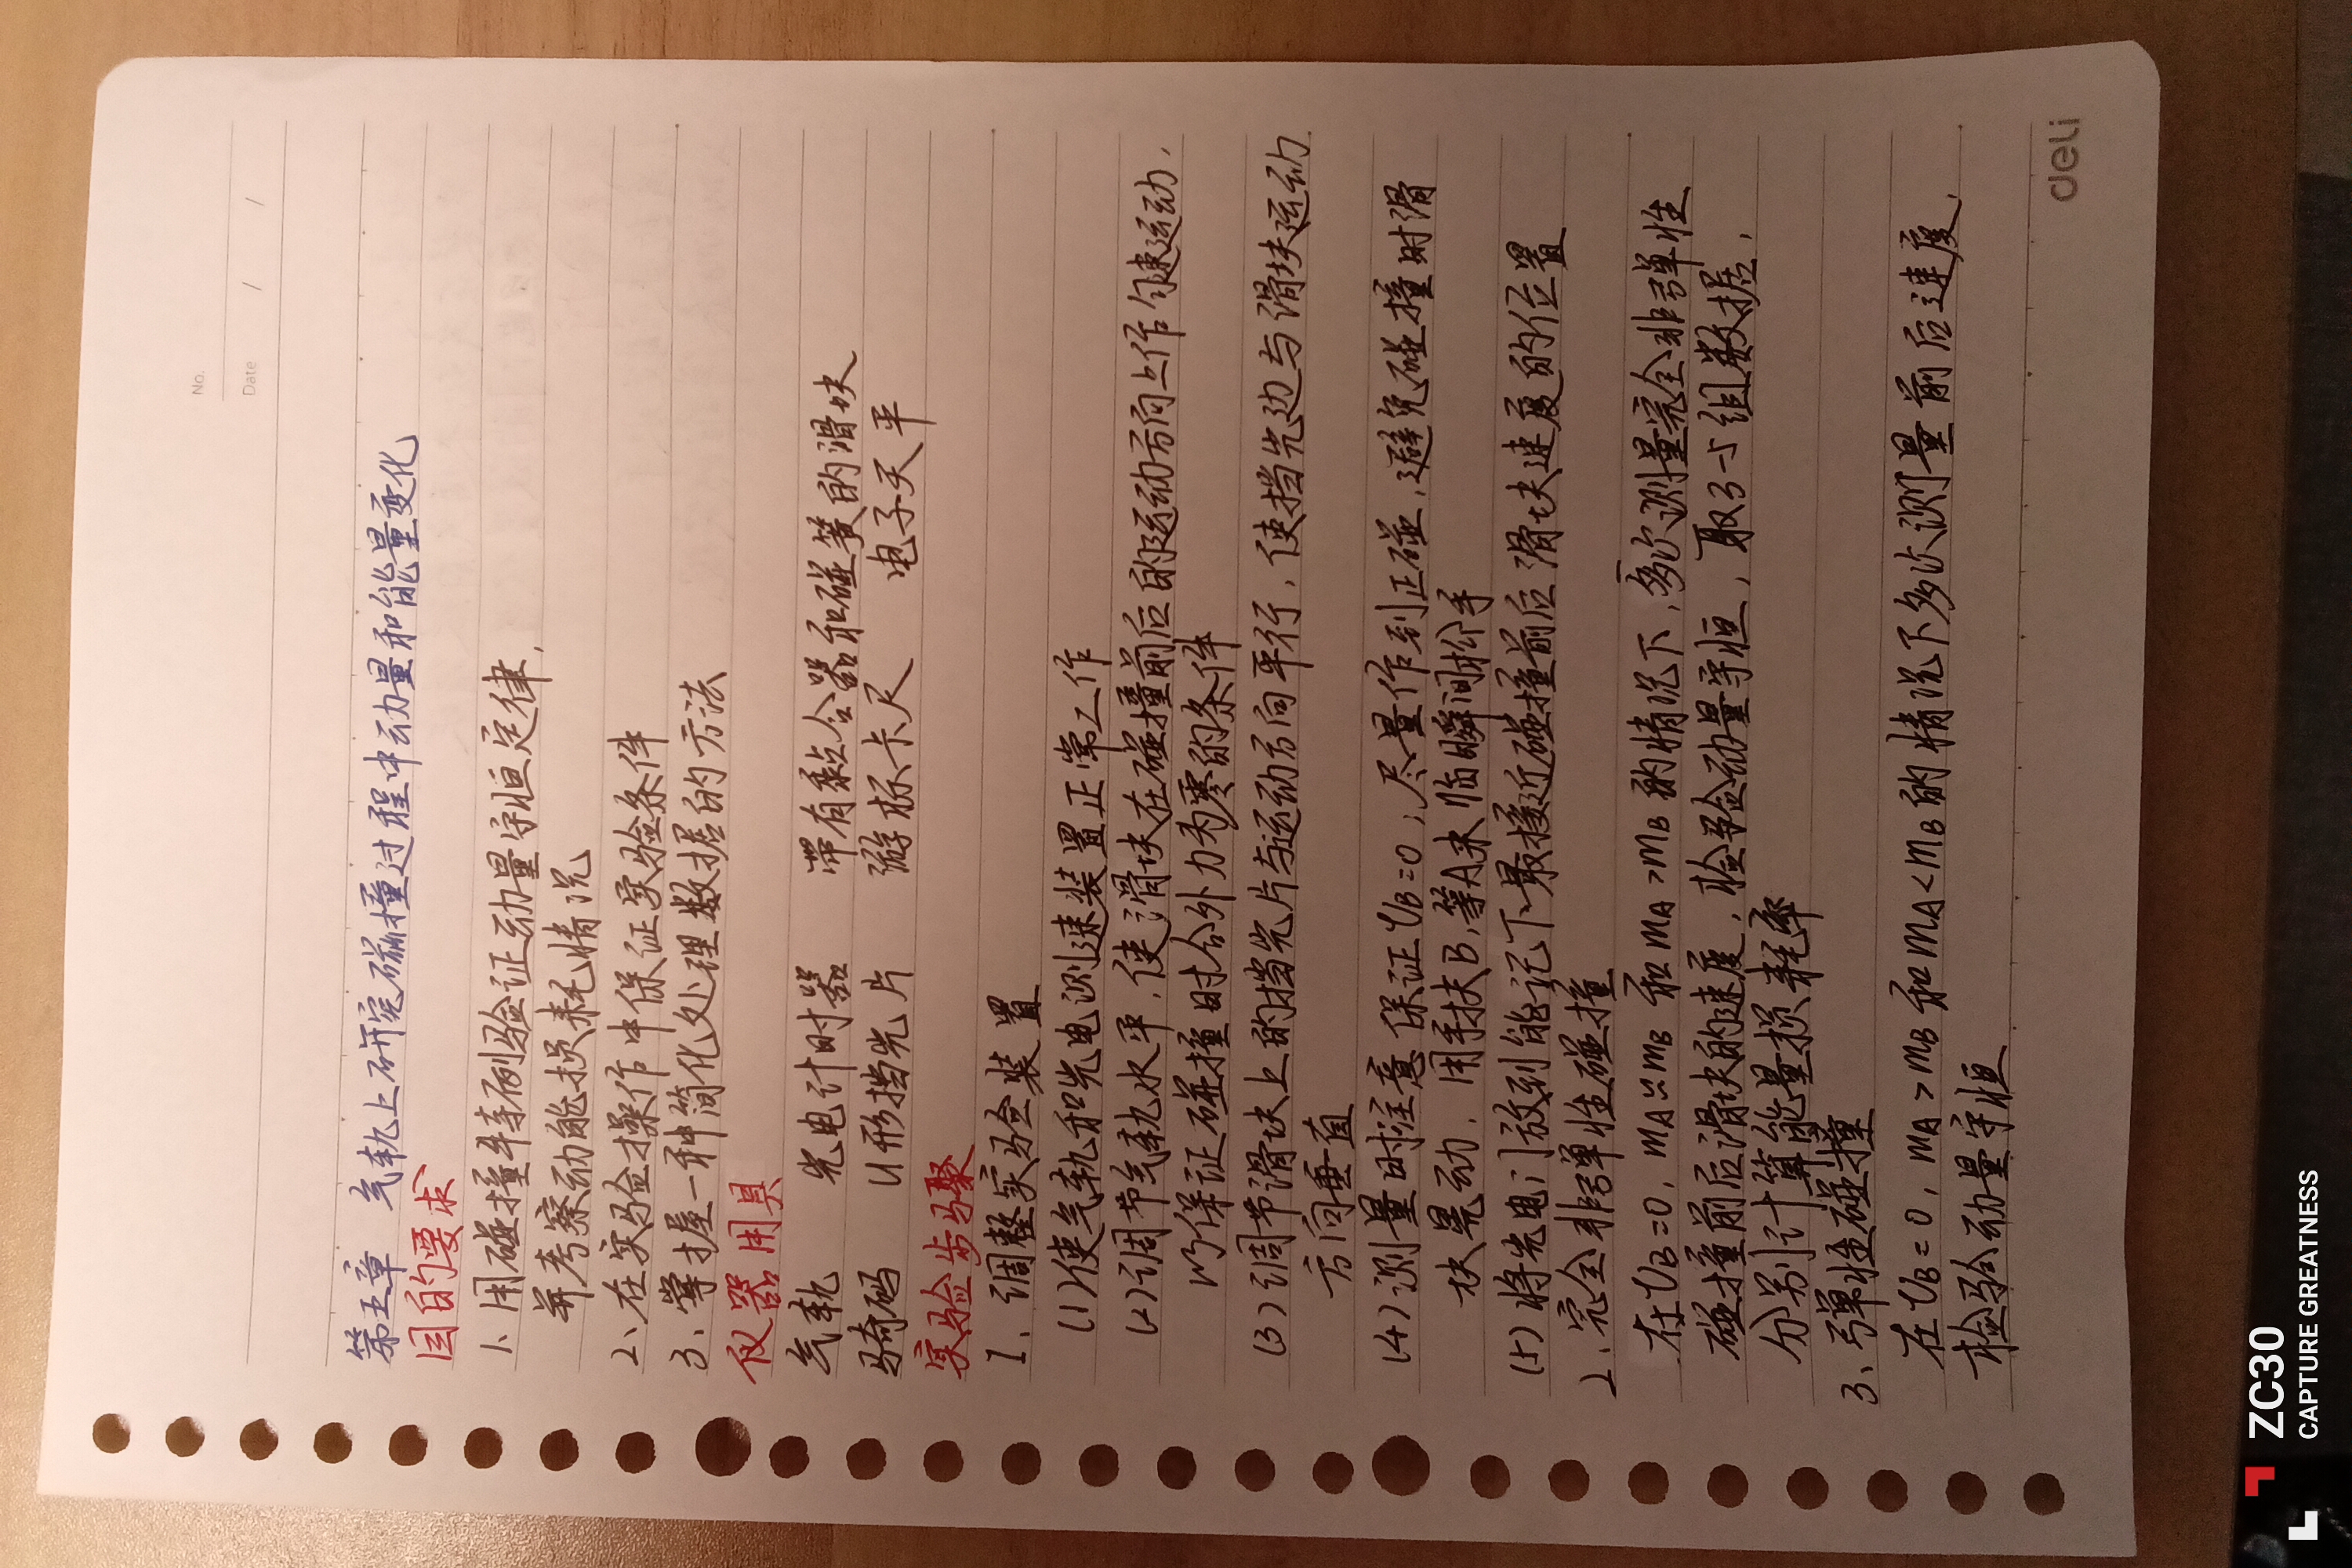 No.
Date / /
第五章 气轨上研究碰撞过程中动量和能量变化
目的要求
1、用碰撞特例验证动量守恒定律,
并考察动能损耗情况
2、在实验操作中保证实验条件
3、掌握一种简化处理数据的方法
仪器用具
气轨 光电计时器 带有黏合器和碰簧的滑块
骑码 U形挡光片 游标卡尺 电子天平
实验步骤
1、调整实验装置
(1)使气轨和光电测速装置正常工作
(2)调节气轨水平,使滑块在碰撞前后的运动方向上作匀速运动,
以保证碰撞时合外力为零的条件
(3)调节滑块上的挡光片与运动方向平行,使挡光边与滑块运动
方向垂直
(4)测量时注意保证υB=0,尽量作到正碰,避免碰撞时滑
块晃动,用手扶B,等A来临瞬间松手
(5)将光电门放到能记下最接近碰撞前后滑块速度的位置
2、完全非弹性碰撞
在υB=0,mA≈mB和mA>mB的情况下,多次测量完全非弹性
碰撞前后滑块的速度,检验动量守恒,取3-5组数据,
分别计算能量损耗率
3、弹性碰撞
在υB=0,mA>mB和mA<mB的情况下多次测量前后速度,
检验动量守恒
deli
ZC30
CAPTURE GREATNESS